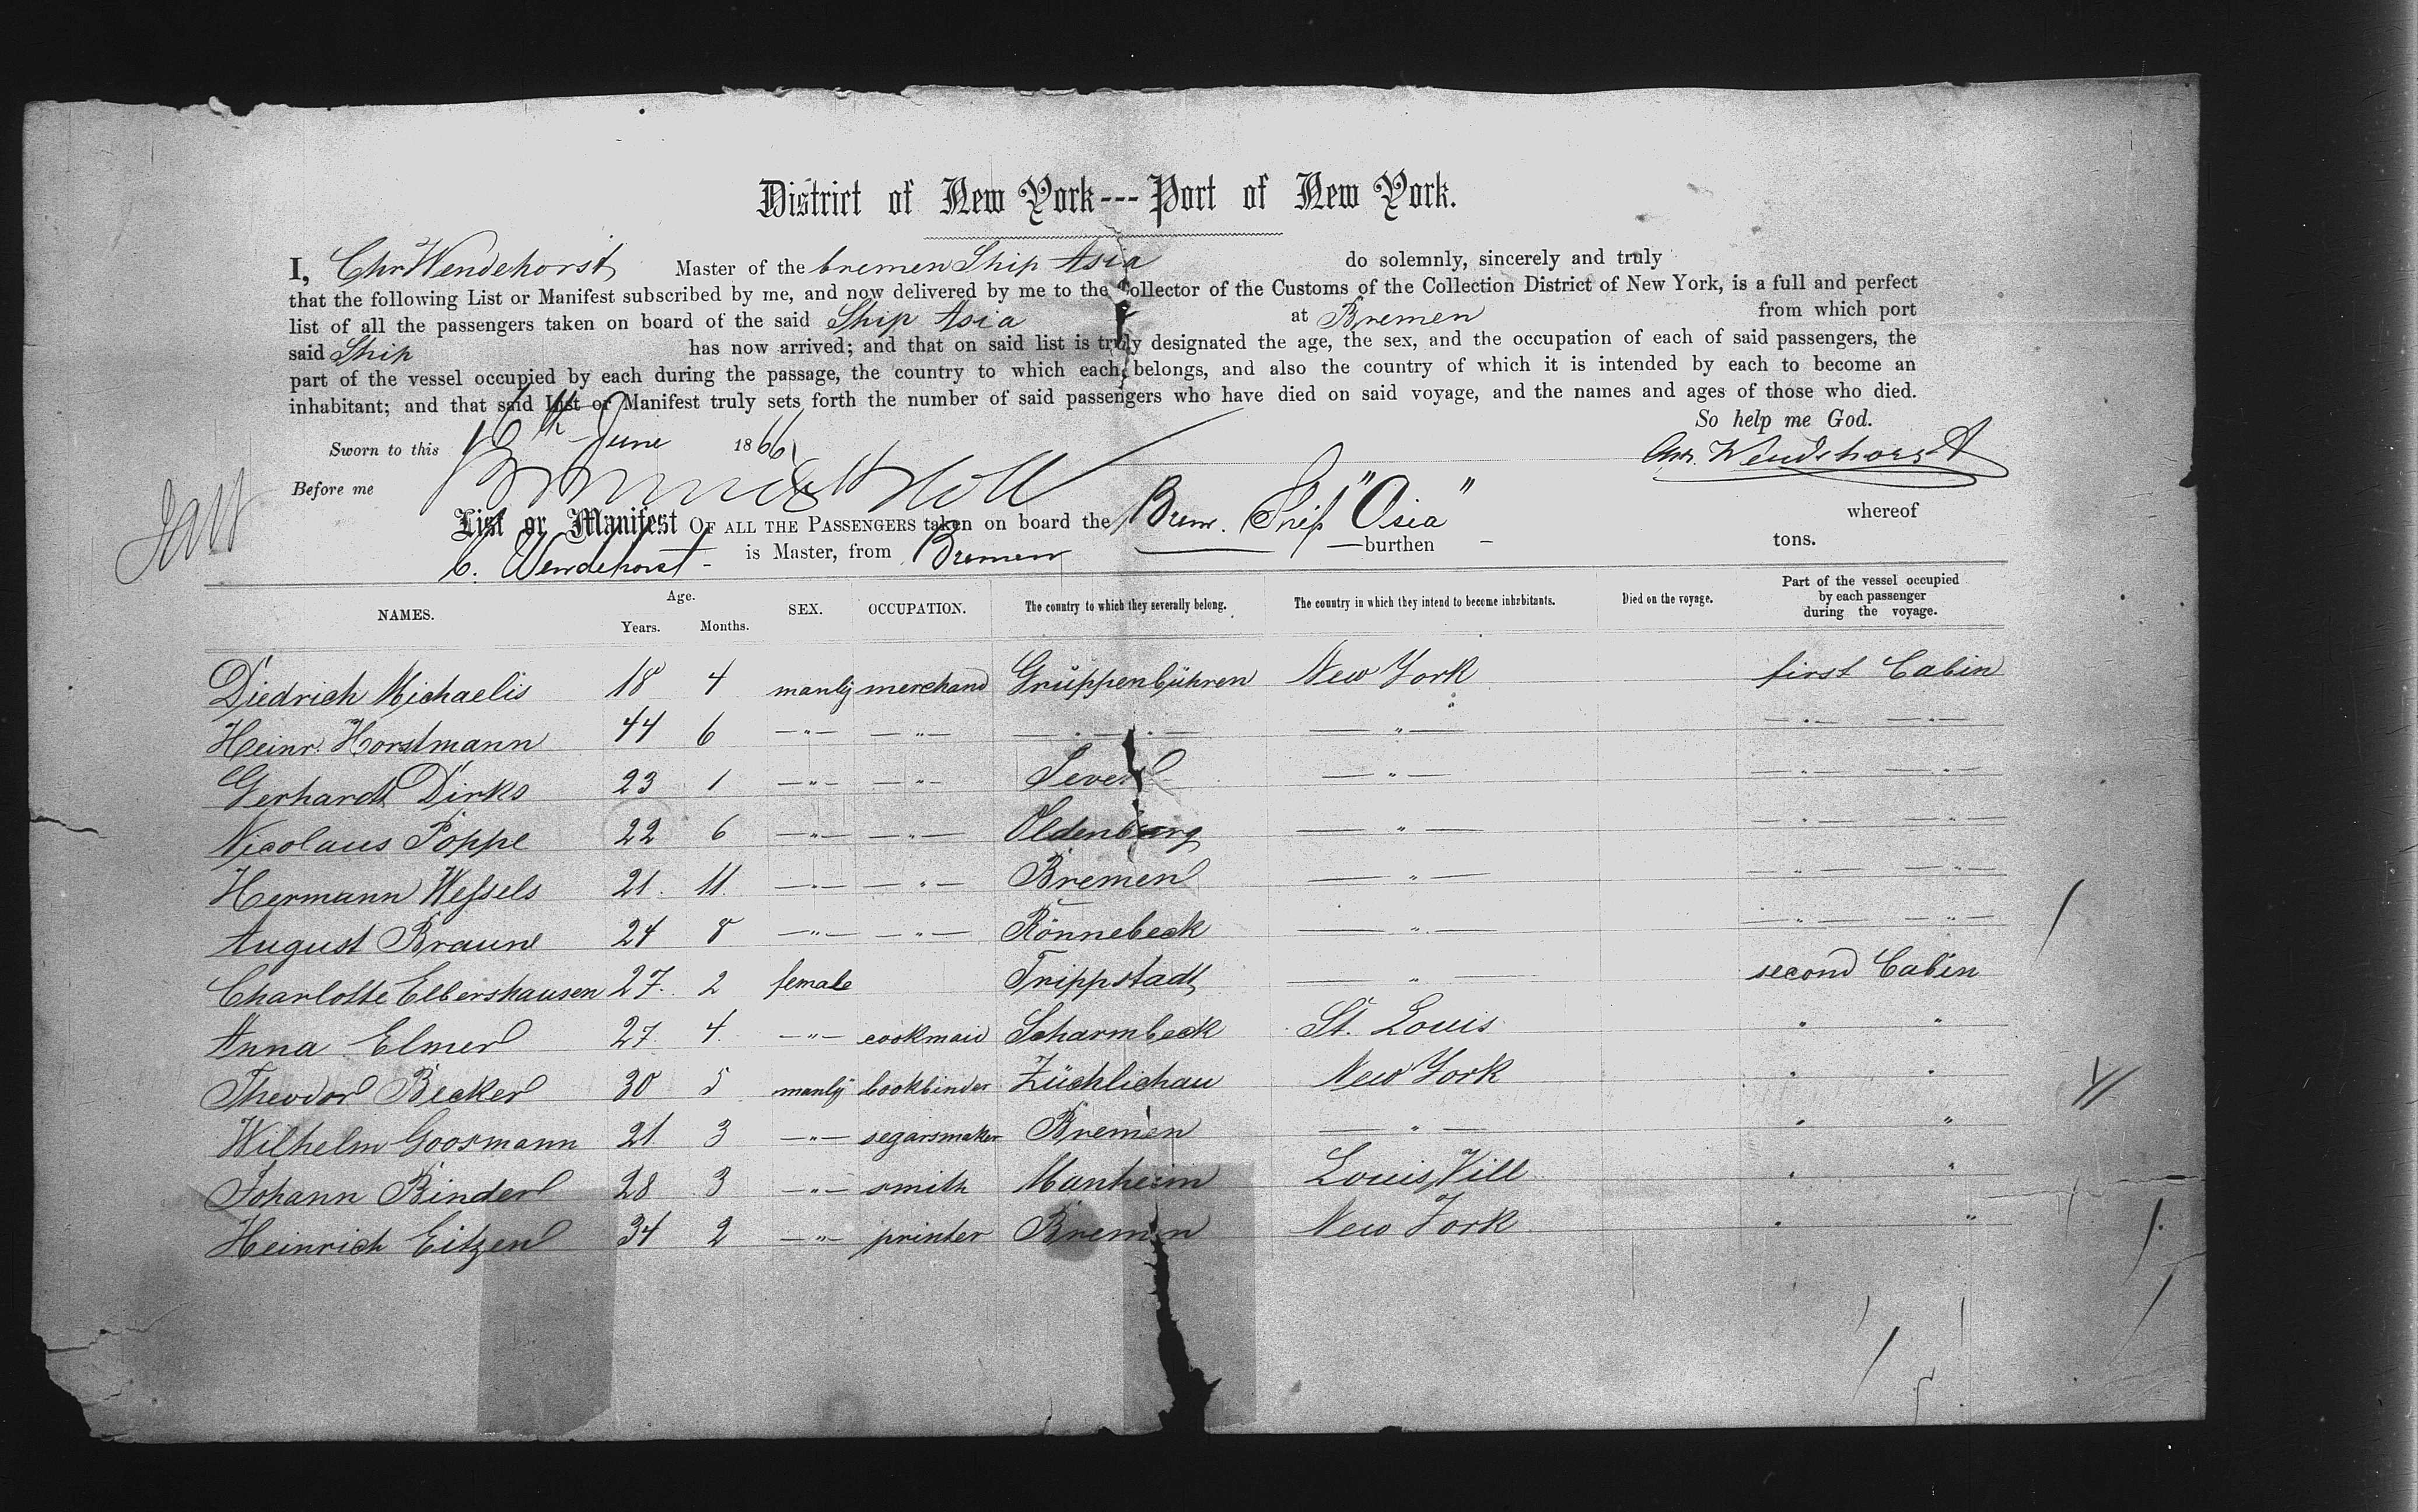 District of New York --- Port of New York.
I, Chr Wendehorst Master of the bremen Ship Asia do solemnly, sincerely and truly
that the following List or Manifest subscribed by me, and now delivered by me to the Collector of the Customs of the Collection District of New York, is a full and perfect
list of all the passengers taken on board of the said Ship Asia at Bremen from which port
said Ship has now arrived; and that on said list is truly designated the age, the sex, and the occupation of each of said passengers, the
part of the vessel occupied by each during the passage, the country to which each belongs, and also the country of which it is intended by each to become an
inhabitant; and that said List or Manifest truly sets forth the number of said passengers who have died on said voyage, and the names and ages of those who died.
So help me God.
Sworn to this 16th June 1866 Chr. Wendehorst
Before me
List or Manifest OF ALL THE PASSENGERS taken on board the Brem. Ship "Asia" whereof
C. Wendehorst - is Master, from Bremen — burthen - tons.
NAMES. Age. Years. Months. SEX. OCCUPATION. The country to which they severally belong. The country in which they intend to become inhabitants. Died on the voyage. Part of the vessel occupied by each passenger during the voyage.
Diedrich Michaelis 18 4 manly merchand Grüppenbühren New York first Cabin
Heinr. Horstmann 44 6 —"— —"— —"—"— —"— —"— —"—
Gerhardt Dirks 23 1 —"— —"— —"— —"— —"—
Nicolaus Poppe 22 6 —"— —"— Oldenburg —"— —"— —"—
Hermann Wessels 21. 11. —"— —"— Bremen —"— —"— —"—
August Braune 24 8 —"— —"— Rönnebeck —"— —"— —"—
Charlotte Elbershausen 27. 2 female Trippstadt —"— second Cabin
Anna Elmer 27 4. —"— cookmaid Scharmbeck St. Louis " "
Theodor Becker 30 5 manly bookbinder Züchlichau New York " "
Wilhelm Goosmann 21 3 —"— segarsmaker Bremen —"— " "
Johann Binder 28 3 —"— smith Manheim Louis Vill " "
Heinrich Eitzen 34 2 —"— printer Bremen New York " "